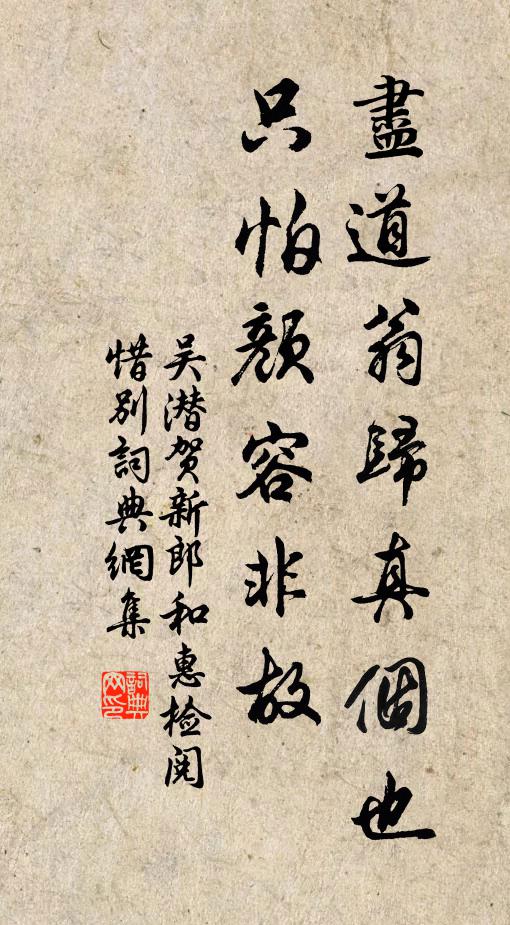 盡道翁歸真個也
只怕顏容非故
吴潜贺新郎和惠检阅
惜别詞典網集
詞典網印